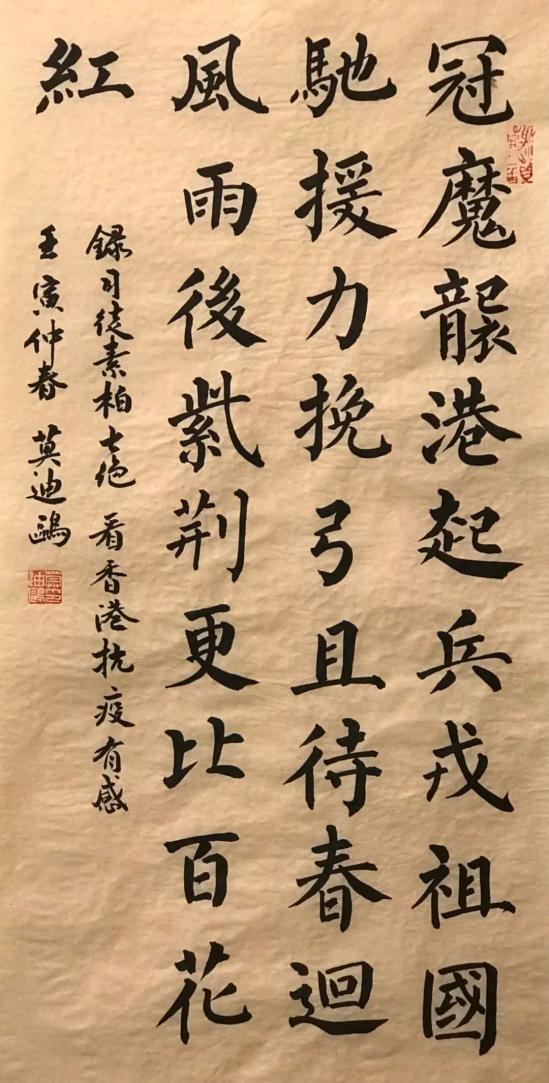 冠魔襲港起兵戎祖國
馳援力挽弓且待春迴
風雨後紫荆更比百花
紅
録司徒素柏七絶 看香港抗疫有感
壬寅仲春 莫迪鷗